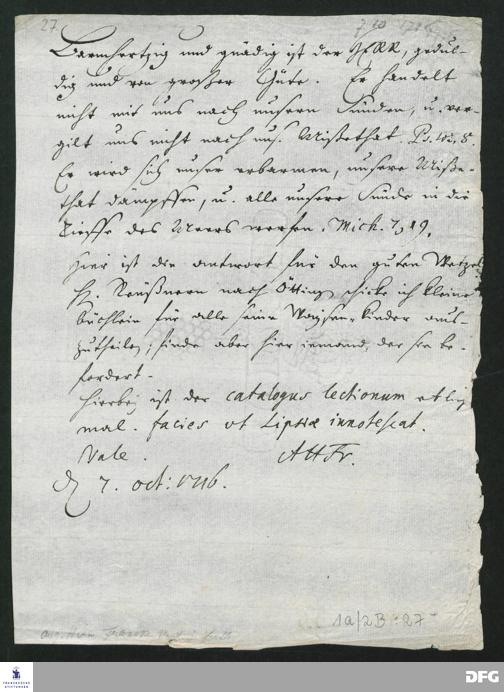 27
Barmhertzig und gnädig ist der HERR, gedul-
dig und von großer Güte. Er handelt
nicht mit uns nach unsern Sünden, u. ver-
gilt uns nicht nach uns. Mißethat. Ps. 103, 8.
Er wird sich unser erbarmen, unsere Miße-
that dämpffen, u. alle unsere Sünde in die
Tieffe des Meers werfen. Mich. 7, 19.
Hier ist die antwort für den guten Wetzel.
H. nachÖtting. schicke ich kleine
büchlein für alle seine Waysen-Kinder aus-
zutheilen; finde aber hier niemand, der sie be-
fordert.
Hierbey ist der catalogus lectionum
mal. facies ut Lipsiae innotescat.
Vale. AHFr.
d. 7. oct: 1716.
1a/2B : 27
DFG